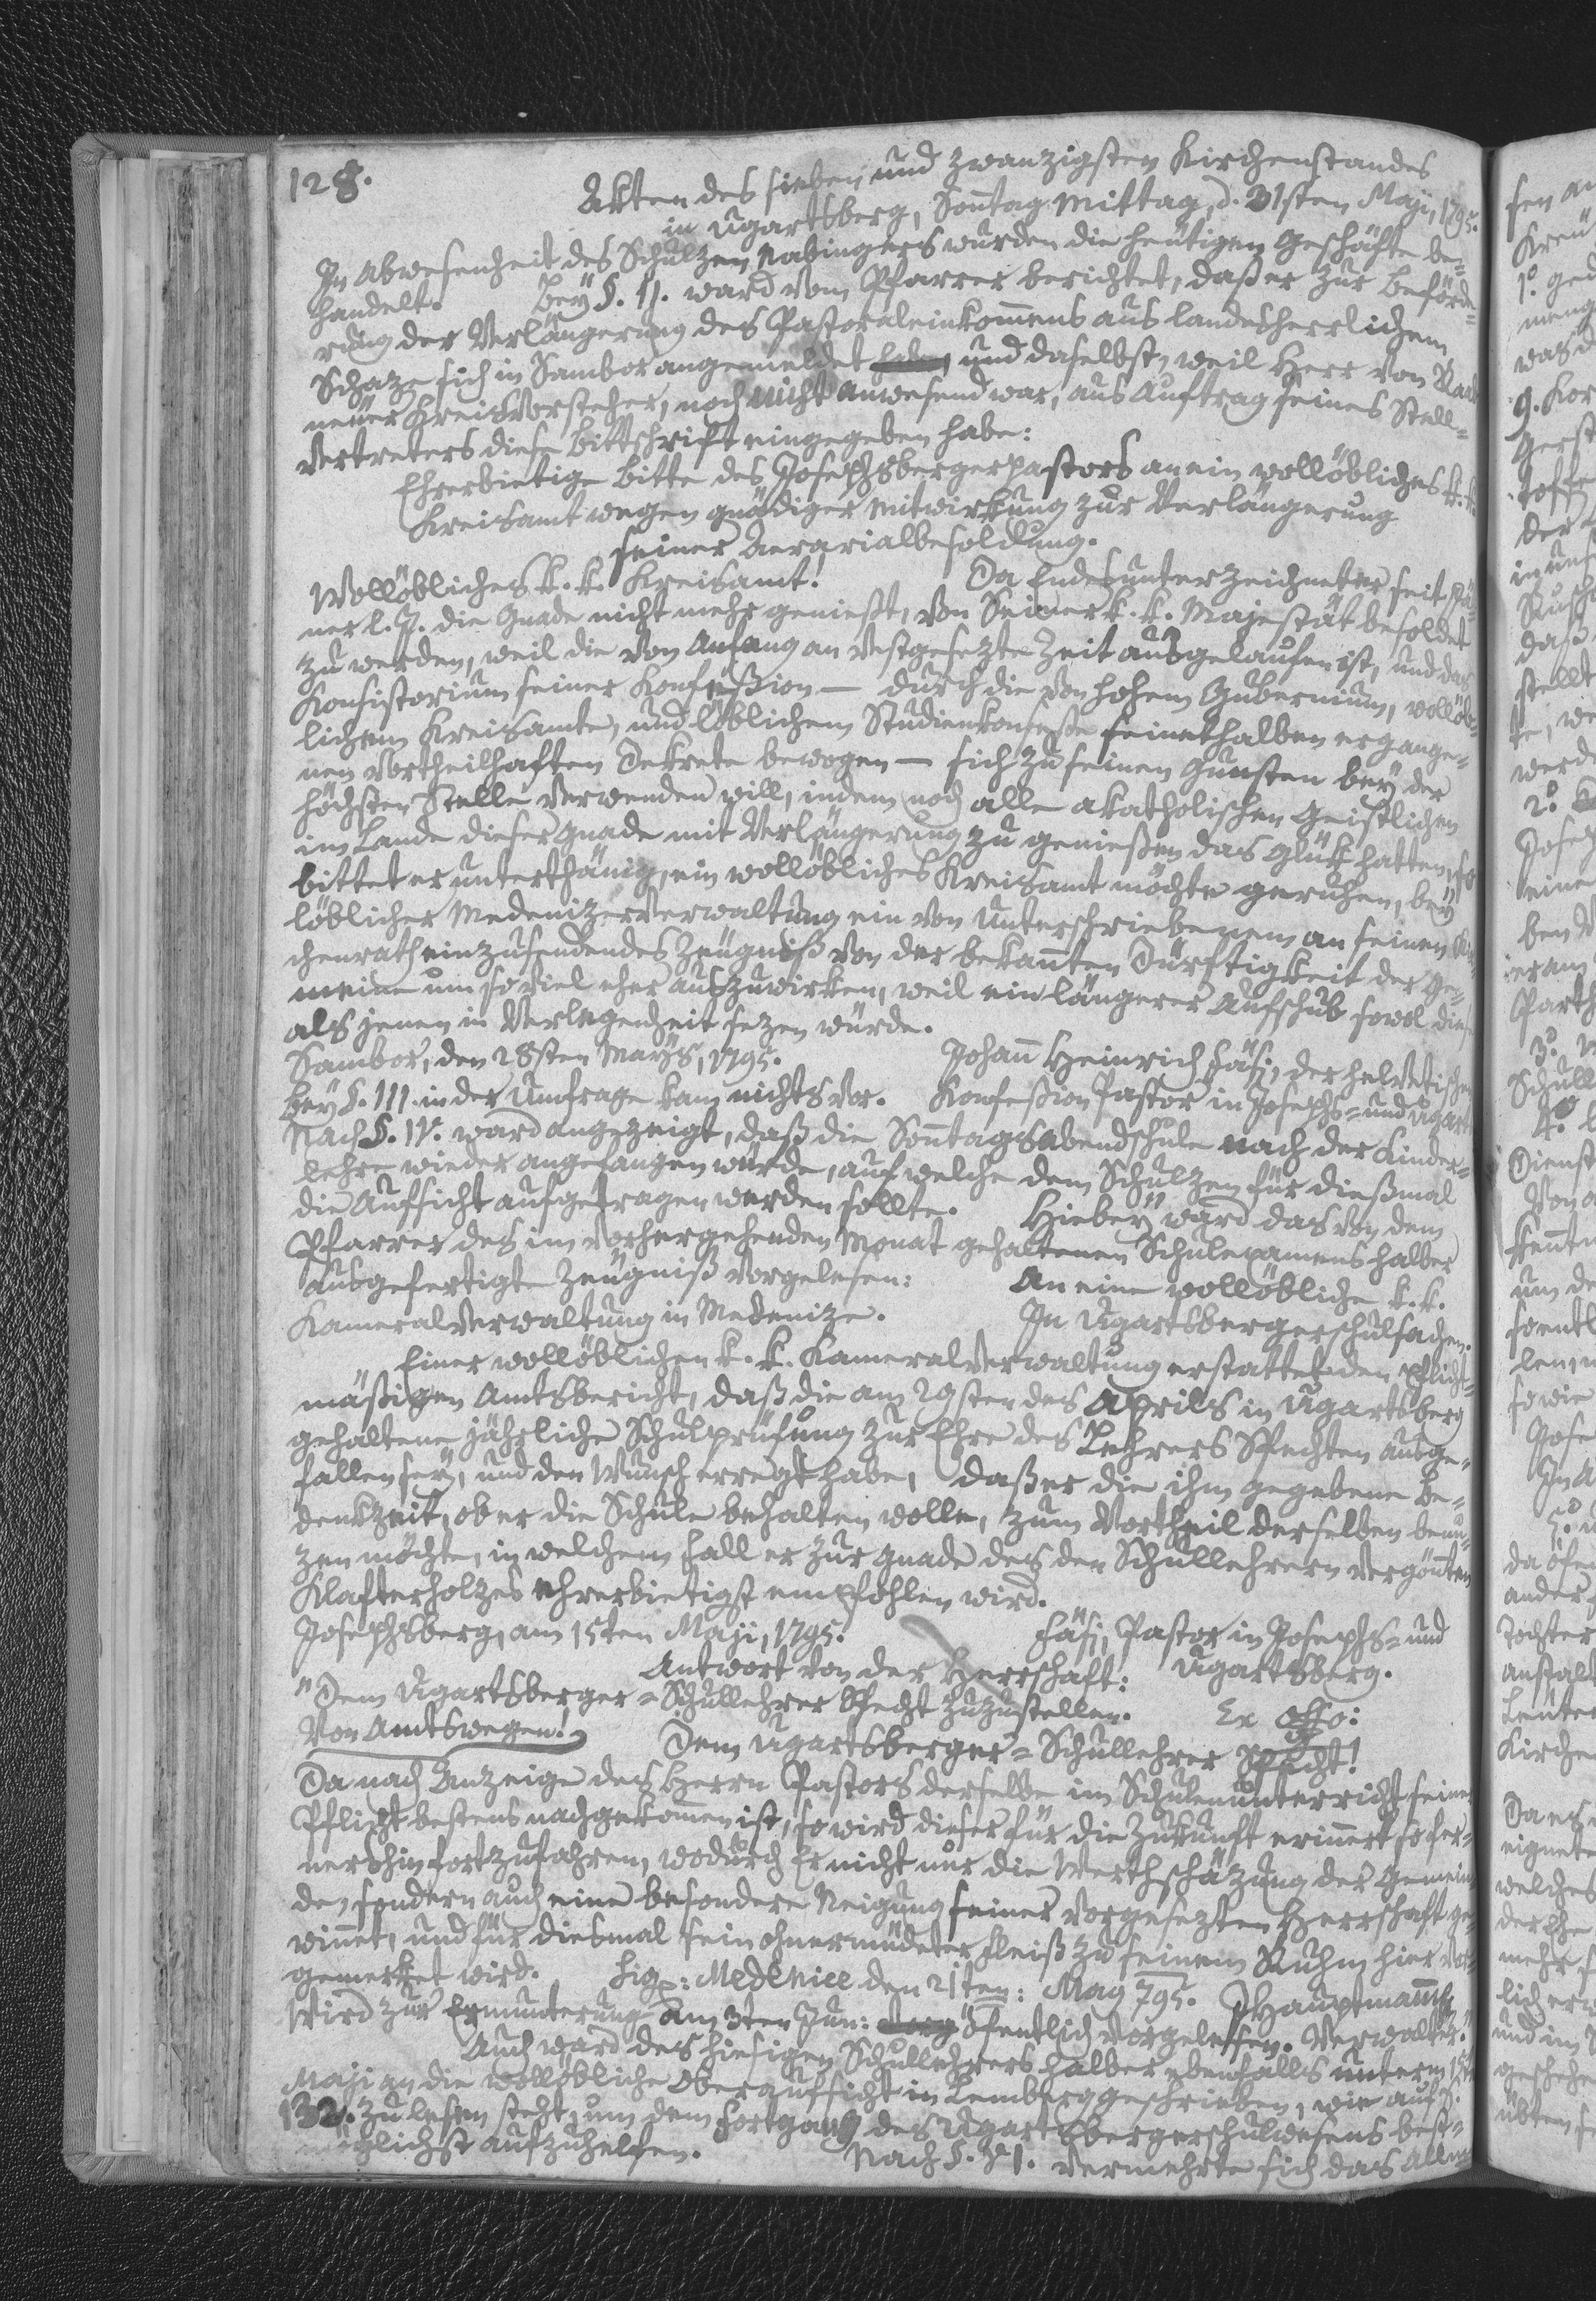 128.
Akten des sieben und zwanzigsten Kirchenstandes
in Ugartsberg, Soñtag Mittag, d. 31sten Maji, 1795.
In Abwesenheit des Schulzen Nabingers wurden die heutigen Geschäfte be=
handelt. Beÿ §. II. ward vom Pfarrer berichtet, daß er zur Beförde=
rung der Verlängerung des Pastoraleinkom̃ens aus landesherrlichem
Schaze sich in Sambor angemeldet und daselbst, weil Herr von
neuer Kreisvorsteher, noch nicht anwesend war, aus Auftrag seines Stell=
vertreters diese Bittschrift eingegeben habe:
Ehrerbietige Bitte des Josephsbergerpastors an ein wollöbliches k. k.
Kreisamt wegen gnädiger Mitwirkung zur Verlängerung
seiner Aerarialbesoldung.
Wollöbliches k. k. Kreisamt! Da Endesunterzeichneter seit Jä=
ner l. J. die Gnade nicht mehr genießt, von Seiner k. k. Majestät besoldet
zu werden, weil die von Anfang an vestgesezte Zeit ausgelaufen ist, und das
Konsistorium seiner Konfeßion — durch die von hohem Gubernium, wollöb=
lichem Kreisamte, und löblichem Studienkonseße seinethalben ergange=
nen vortheilhaften Dekrete bewogen — sich zu seinen Gunsten beÿ der
höchsten Stelle verwenden will, indem noch alle akatholischen Geistlichen
im Lande dieser Gnade mit Verlängerung zu genießen das Glük hatten, so
bittet er unterthänig, ein wollöbliches Kreisamt möchte geruhen, beÿ
löblicher Medenizerverwaltung ein von Unterschriebenem an seinen Kir=
chenrath einzusendendes Zeugniß von der bekañten Dürftigkeit der Ge=
meine um so viel eher auszuwirken, weil ein längerer Aufschub sowol diese
als jenen in Verlegenheit sezen würde.
Sambor, den 28sten Maÿs, 1795. Johañ Heinrich Fäsi, der helvetischen
Beÿ §. III. in der Umfrage kam nichts vor. Konfeßion Pastor in Josephs= und Ugarts
Nach §. IV. ward angezeigt, daß die Soñtagsabendschule nach der Kinder=
lehre wieder angefangen würde, auf welche dem Schulzen für dießmal
die Aufsicht aufgetragen werden sollte. Hiebeÿ ward das von dem
Pfarrer des im vorhergehenden Monat gehaltenen Schulexamens halber
ausgefertigte Zeugniß vorgelesen: An eine wollöbliche k. k.
Kameralverwaltung in Medenize. In Ugartsbergerschulsachen.
Einer wollöblichen k. k. Kameralverwaltung erstattet den Pflicht=
mäßigen Amtsbericht, daß die am 29sten des Aprils in Ugartsberg
gehaltene jährliche Schulprüfung zur Ehre des Lehrers Spechten ausge=
fallen seÿ, und den Wunsch erregt habe, daß er die ihm gegebene Be=
denkzeit, ob er die Schule behalten wolle, zum Vortheil derselben benu=
zen möchte, in welchem Fall er zur Gnade des den Schullehrern vergöñten
Klafterholzes ehrerbietigst empfohlen wird.
Josephsberg, am 15ten Maji, 1795. Fäsi, Pastor in Josephs= und
Antwort von der Herrschaft: Ugartsberg.
"Dem Ugartsberger=Schullehrer Specht zuzustellen. Ex offo:
Von Amtswegen! Dem Ugartsberger=Schullehrer Specht!
Da nach Anzeige des Herrn Pastors derselbe im Schulenunterricht seiner
Pflicht bestens nachgekom̃en ist, so wird dieser für die Zukunft erinnert so fer=
nershin fortzufahren, wodurch Er nicht nur die Werthschäzung der Gemein=
de, sondern auch eine besondere Neigung seiner vorgesezten Herrschaft ge=
wiñet, und für diesmal sein ohnermüdeter Fleiß zu seinem Ruhm hier vor=
gemerket wird. Sig: Medenice den 21ten: May 795. Hauptmañ
Wird zur Ermunterung am 3ten Jun: öfentlich vorgelesen. Verwalter."
Auch ward des hiesigen Schullehrers halber ebenfalls unterm 15ten
Maji an die wollöbliche Oberaufsicht in Lemberg geschrieben, wie auf S.
132. zu lesen steht, um dem Fortgang des Ugartsbergerschulwesens best=
möglichst aufzuhelfen. Nach §. VI. vermehrte sich das Allmo